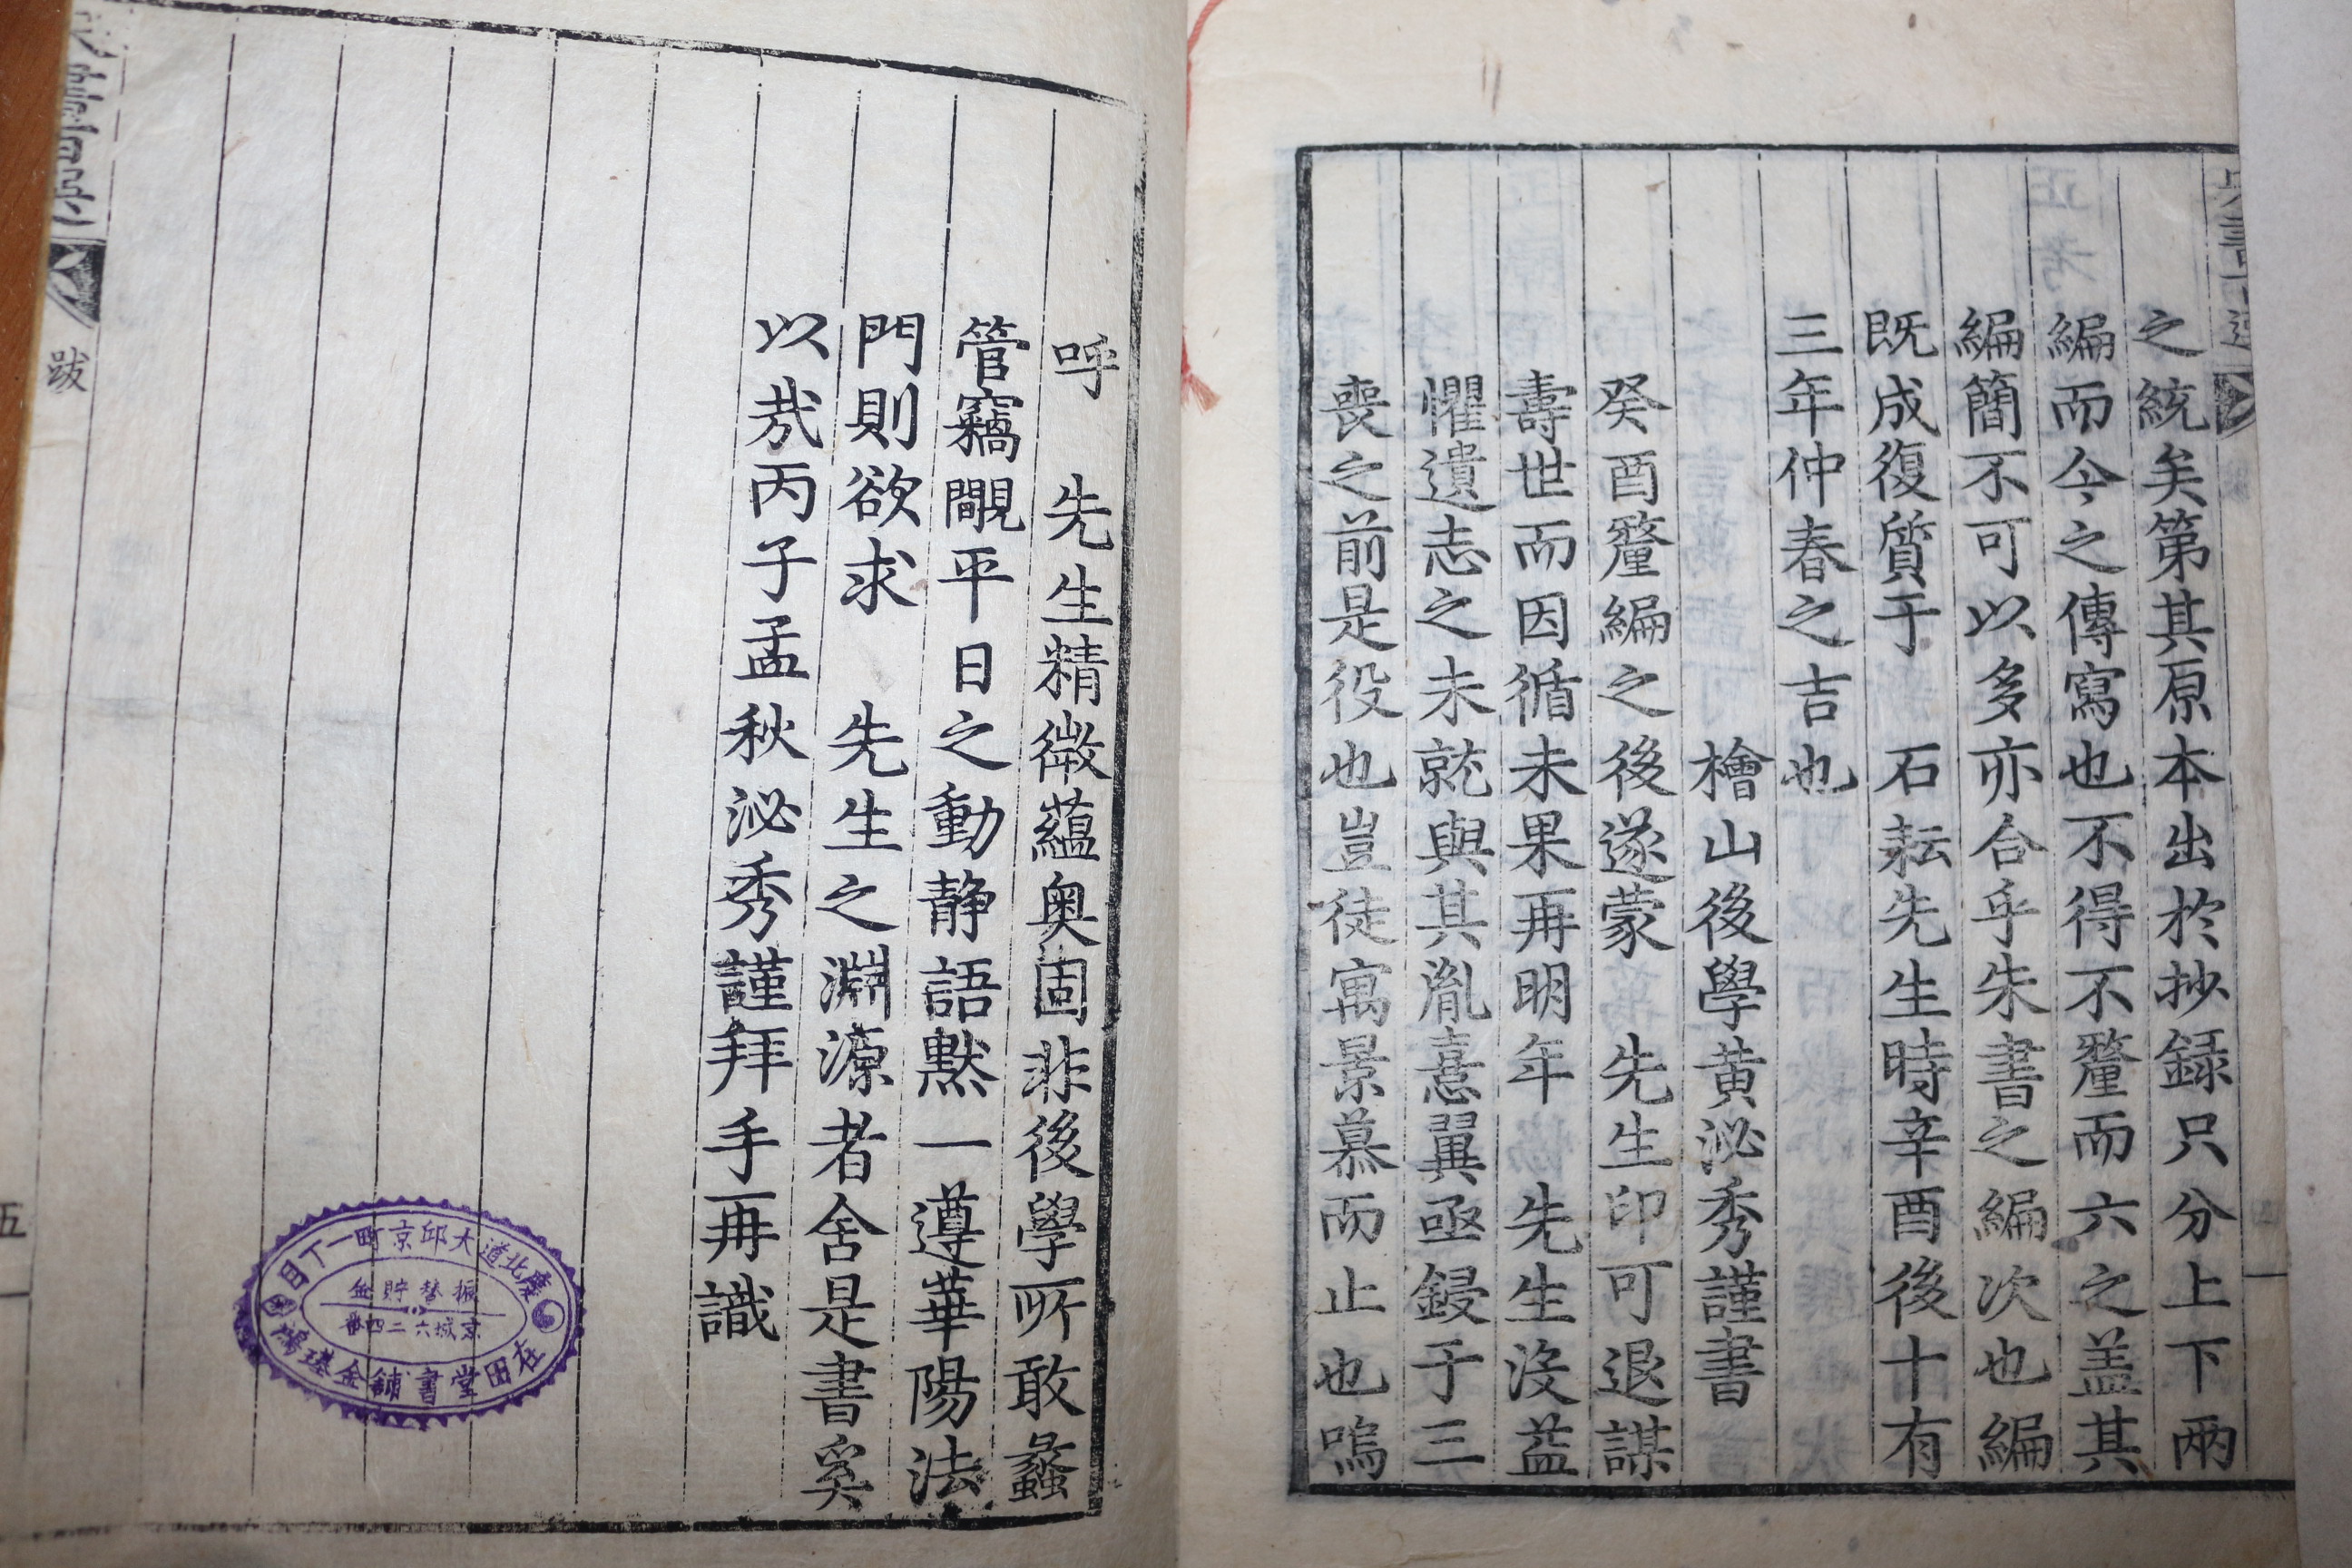 之統矣第其原本出於抄録只分上下兩
編而今之傳寫也不得不釐而六之盖其
編簡不可以多亦合乎朱書之編次也編
既成復質于 石耘先生時辛酉後十有
三年仲春之吉也
檜山後學黄泌秀謹書
癸酉釐編之後遂蒙 先生印可退謀
壽世而因循未果再明年 先生沒益
懼遺志之未就與其胤憙翼亟鋟于三
喪之前是役也豈徒寓景慕而止也嗚
呼 先生精微蘊奥固非後學所敢蠡
管竊覸平日之動静語默一遵華陽法
門則欲求 先生之淵源者舍是書奚
以㢤丙子孟秋泌秀謹拜手再識
跋
五
慶北道大邱京町一丁目
振替貯金
京城六二四番
在田堂書鋪金璂鴻